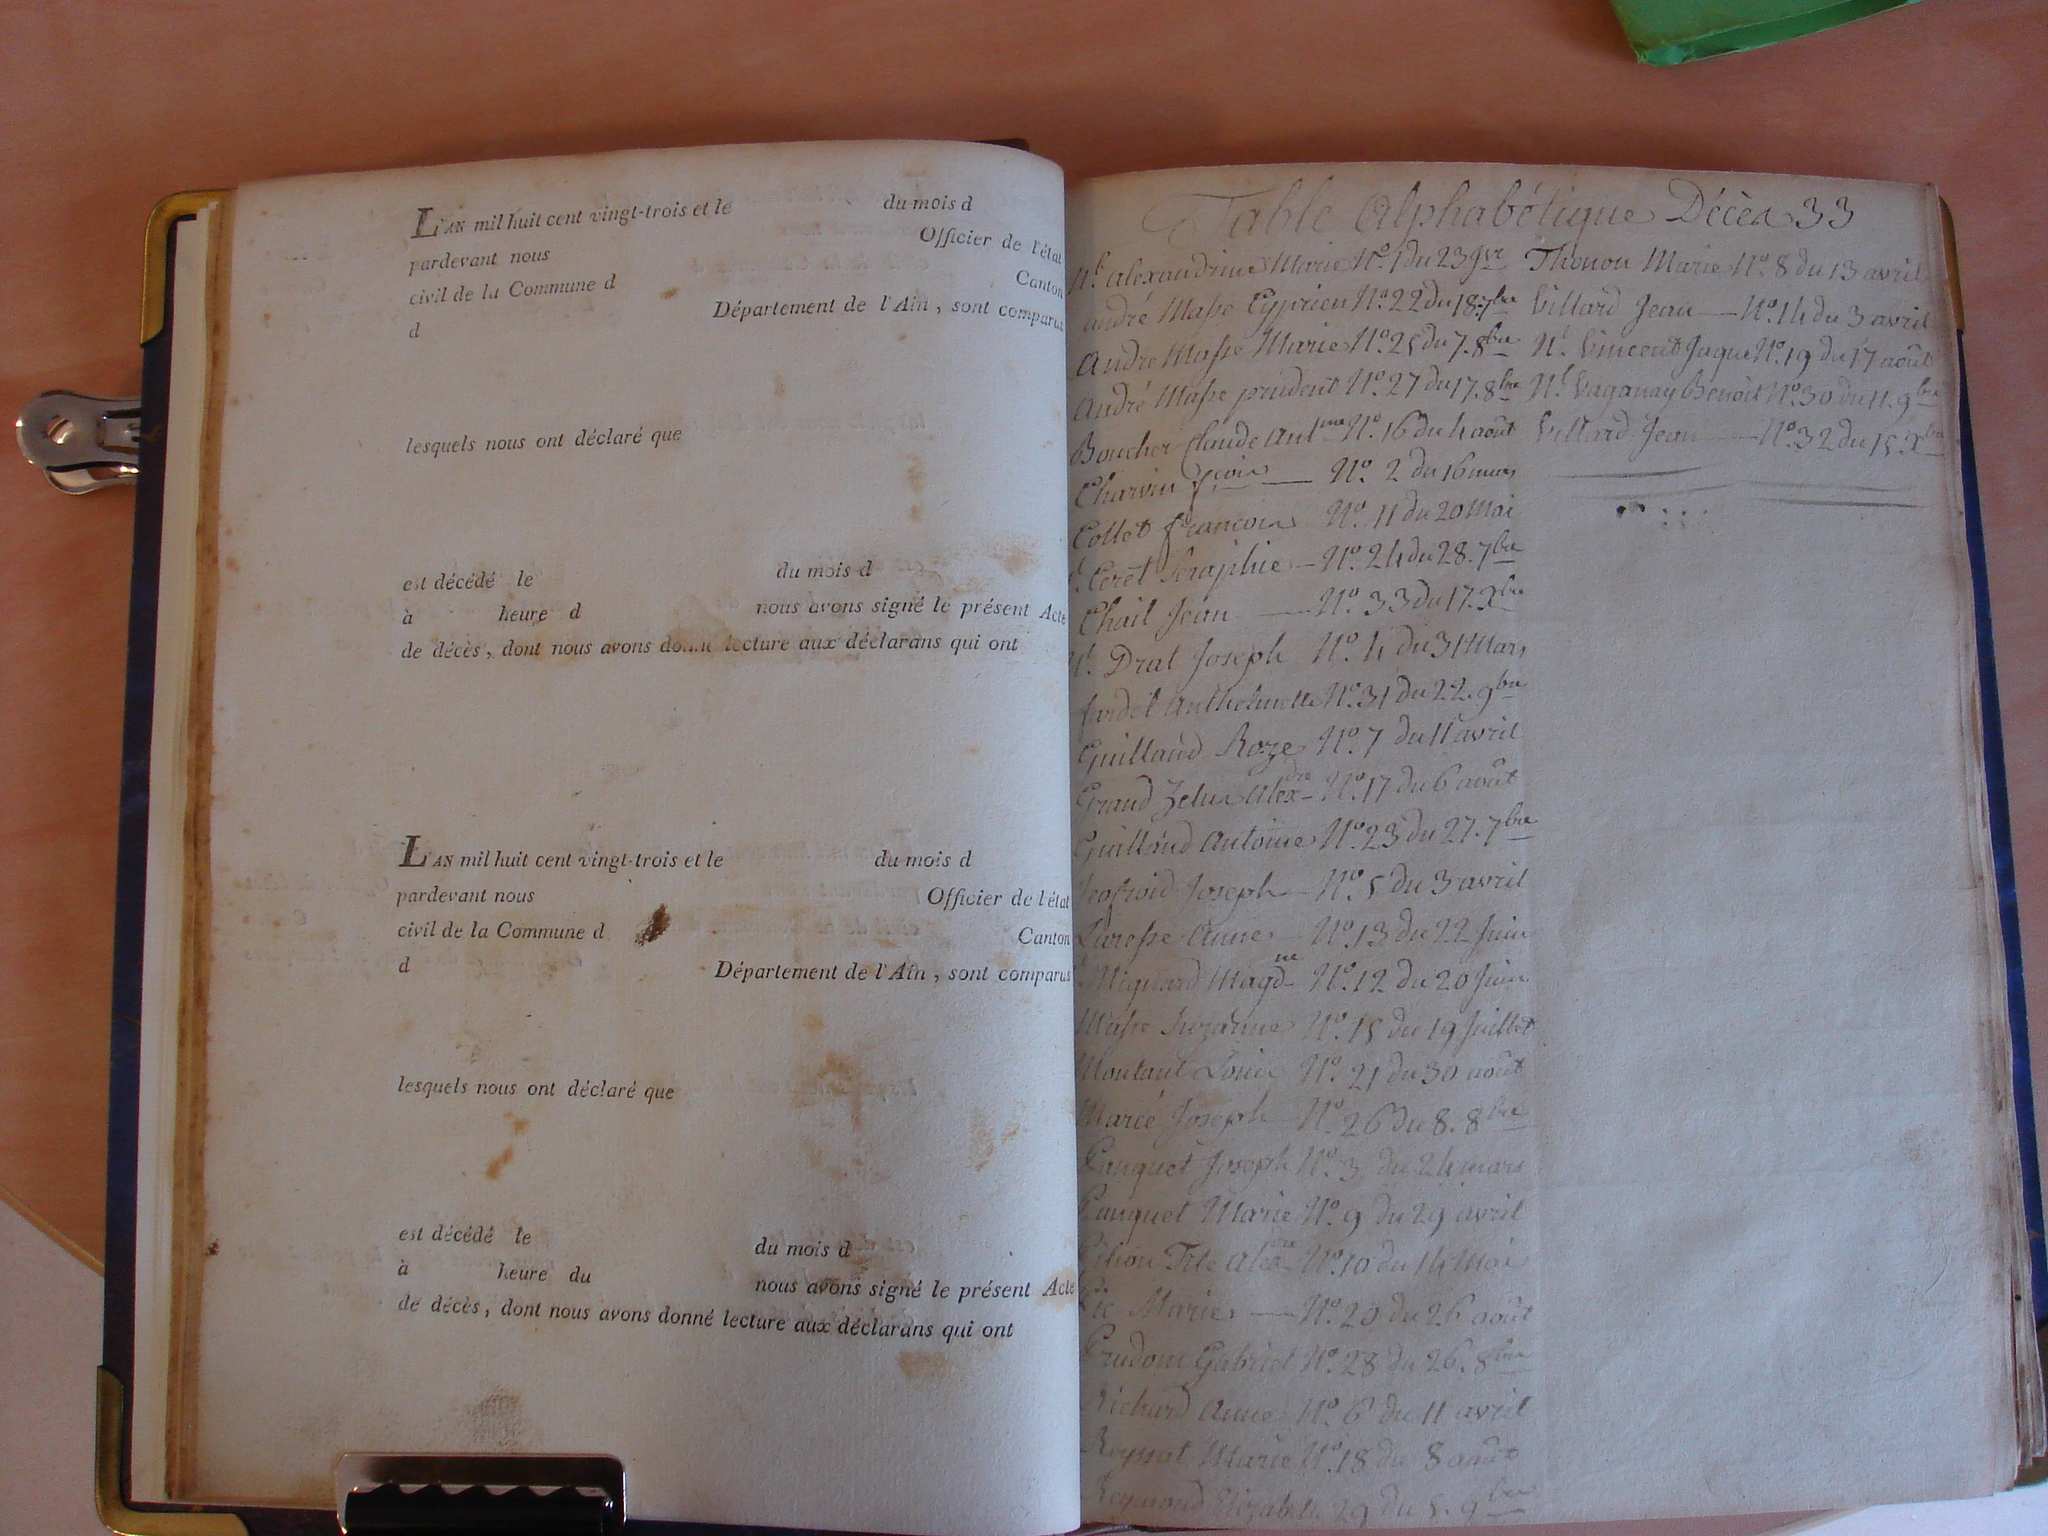 L'AN mil huit cent vingt-trois et le du mois d
pardevant nous Officier de l'état
civil de la Commune d Canton
d Département de l'Ain, sont comparus
lesquels nous ont déclaré que
est décédé le du mois d
à heure d nous avons signé le présent Acte
de décès, dont nous avons donné lecture aux déclarans qui ont
L'AN mil huit cent vingt-trois et le du mois d
pardevant nous Officier de l'état
civil de la Commune d Canton
d Département de l'Ain, sont comparus
lesquels nous ont déclaré que
est décédé le du mois d
à heure du nous avons signé le présent Acte
de décès, dont nous avons donné lecture aux déclarans qui ont
Table Alphabétique Décès 33
Nl. alexandrine Marie No. 1 du 23 Jvr
andré Masse Cyprien No. 22 du 18.7bre
André Masse Marie No. 25 du 7.8bre
André Masse prudent No. 27 du 17.8bre
Boucher Claude Antme No. 16 du 4 août
Charvin fcois No. 2 du 16 mars
Collet françois No. 11 du 20 Mai
Ceret Séraphie No. 24 du 28.7bre
Chail Jean No. 33 du 17.Xbre
Nl. Drat Joseph No. 4 du 31 Mars
fardel Anthelmette No. 31 du 22.9bre
Guilland Roze No. 7 du 11 avril
Grand Alexdre No. 17 du 6 août
Guilland Antoine No. 23 du 27.7bre
Joseph No. 5 du 3 avril
Anne No. 13 du 22 Juin
Mignard Magdne No. 12 du 20 Juin
Masse Suzanne No. 15 du 19 Juillet
Montant Louis No. 21 du 30 août
Marie Joseph No. 26 du 8.8bre
Panquet Joseph No. 3 du 24 mars
Panquet Marie No. 9 du 29 avril
No. 10 du 14 Mai
Pic Marie No. 20 du 26 août
Prudom Gabriel No. 28 du 26.8bre
Richard Anne No. 6 du 11 avril
Marie No. 18 du 8 août
Reymond Elizabeth 29 du 5.9bre
Thonon Marie No. 8 du 13 avril
Villard Jean No. 14 du 3 avril
Nl. Vincent Jaque No. 19 du 17 août
Nl. Vaganay Benoit No. 30 du 11.9bre
Villard Jean No. 32 du 15.Xbre